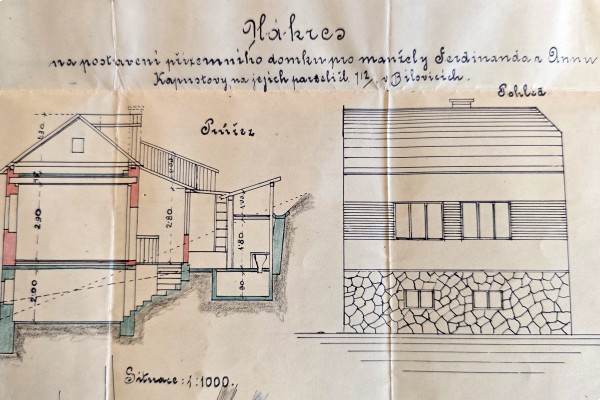 Nákres
na postavení přízemního domku pro manžely Ferdinanda a Annu
Kapustovy na jejich parseli čl. 7/2 v Bílovicích.
Pohled
Průřez
2.90
2.80
1.80
2.00
90
Situace: 1:1000.